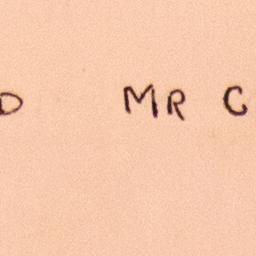 D MR C